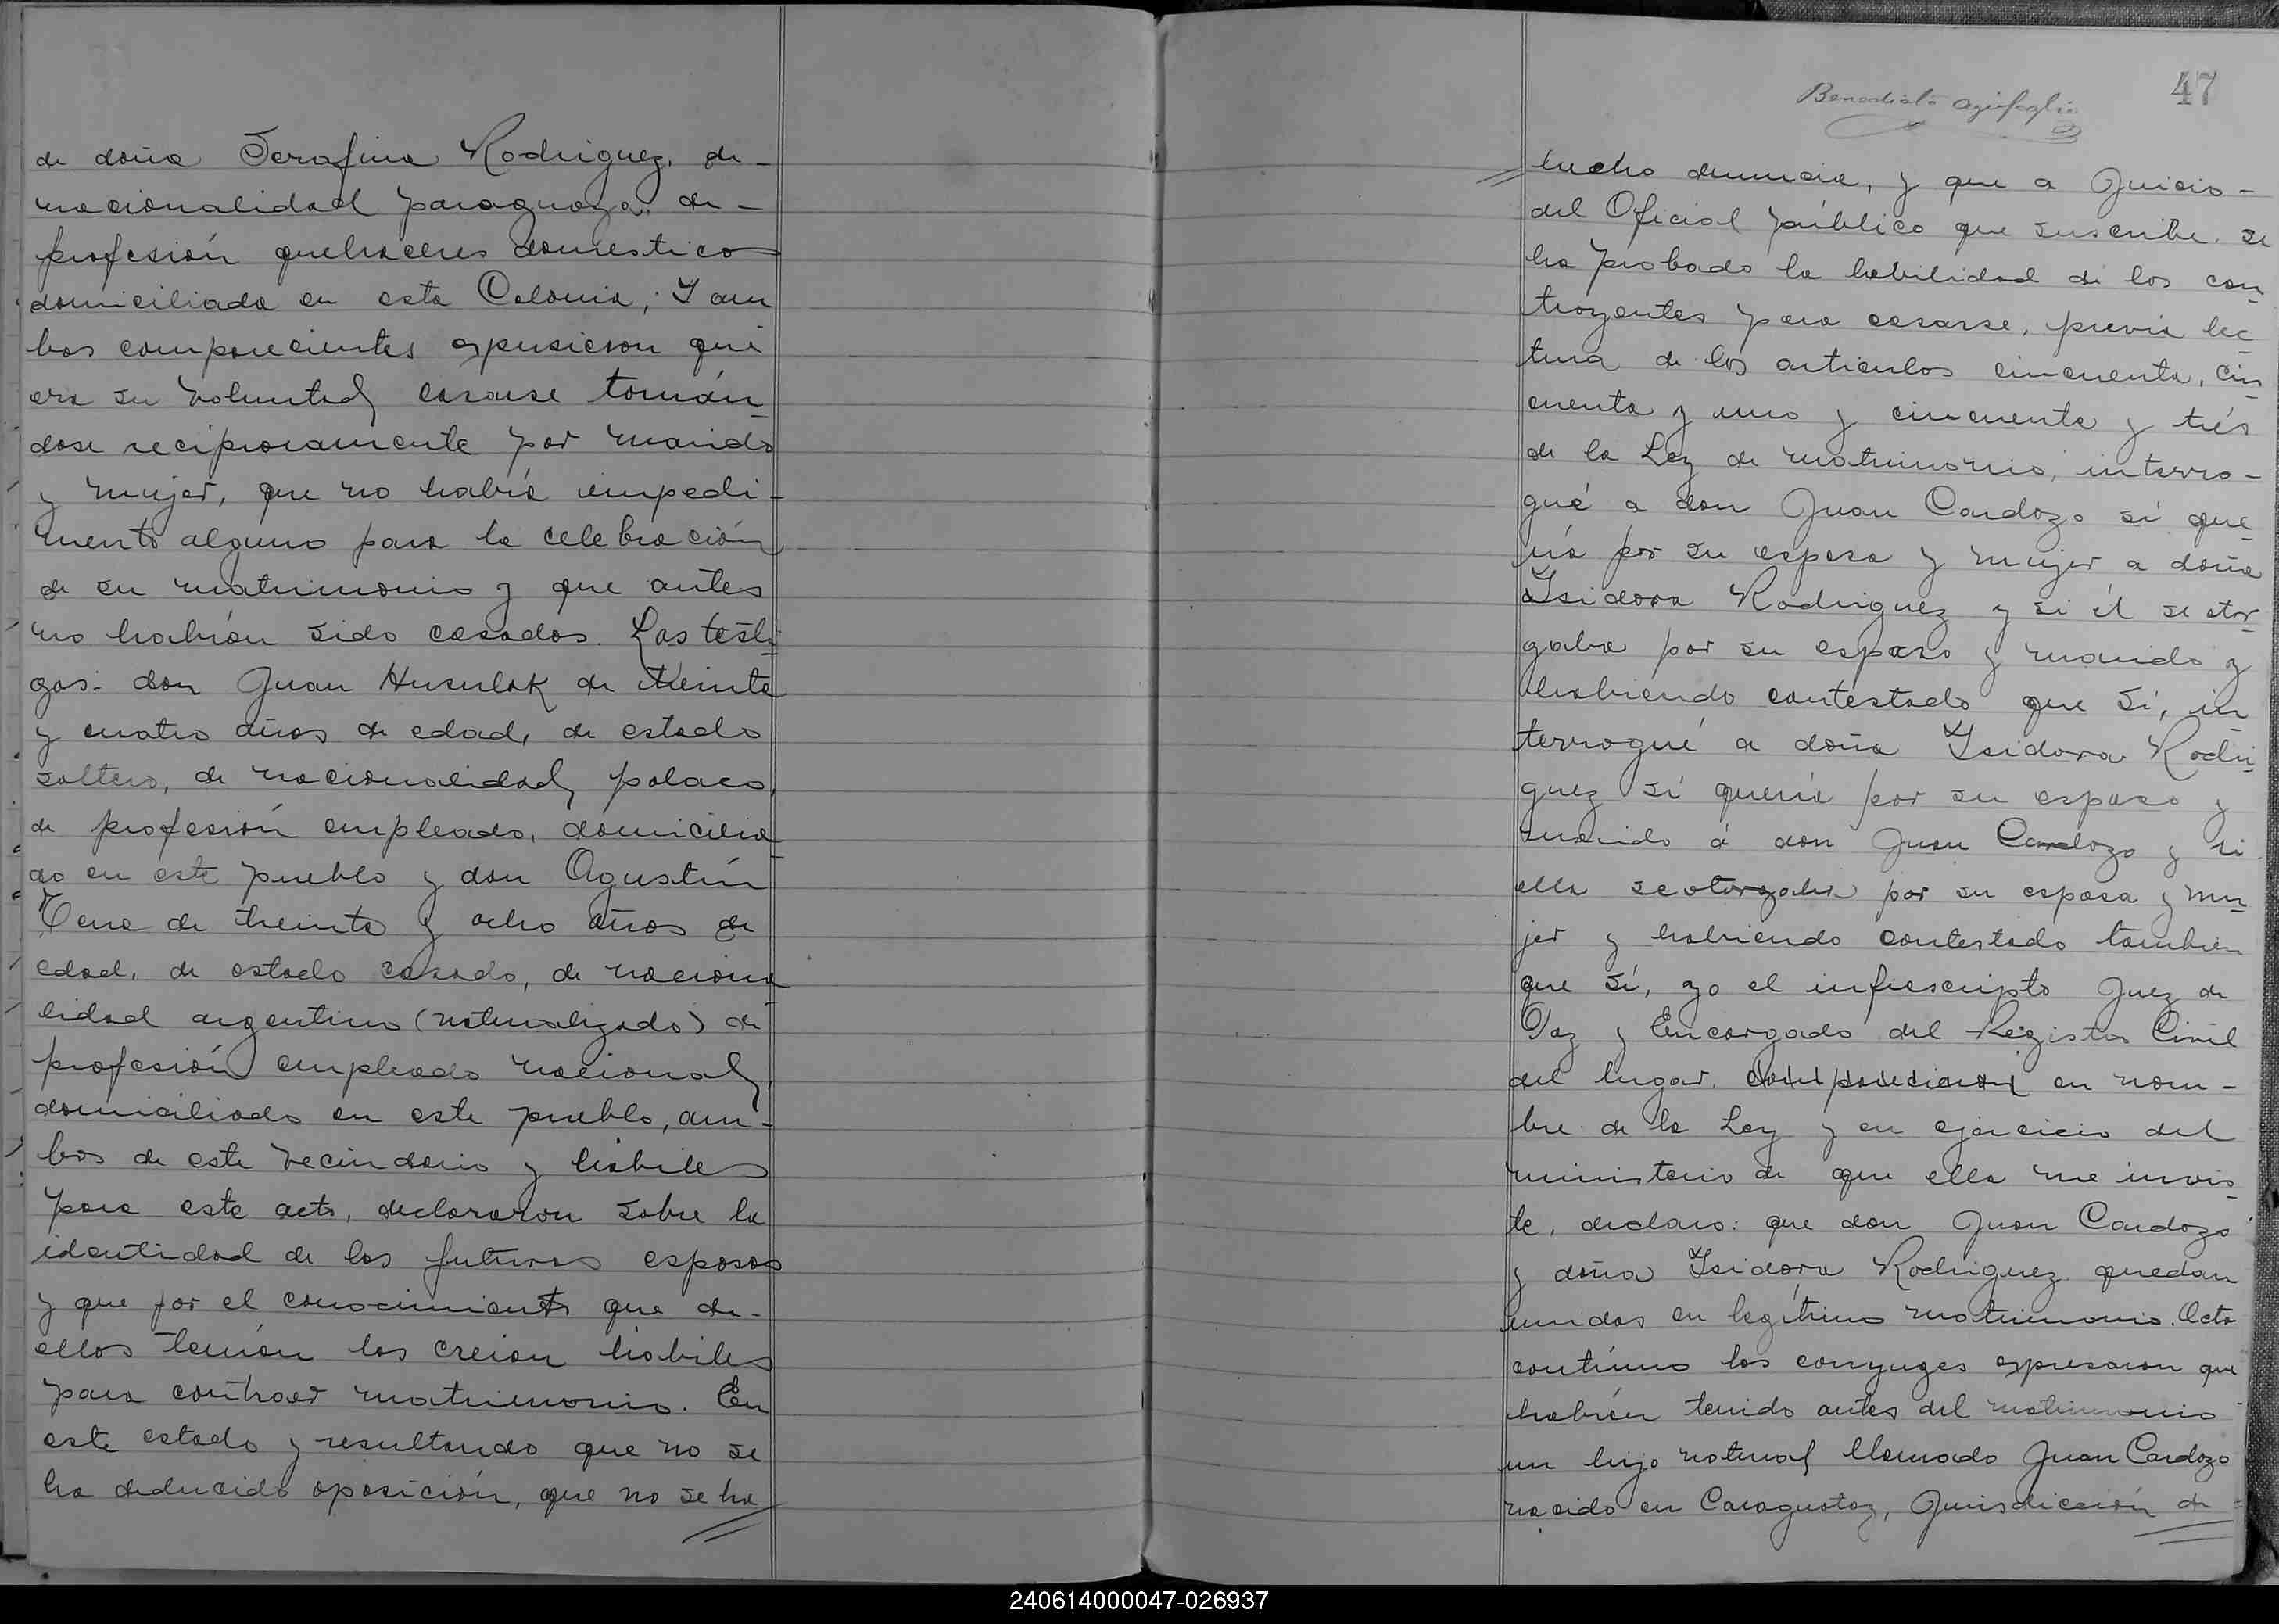 de doña Serafina Rodriguez, de-
nacionalidad paraguaya, de-
profesión quehaceres domestico
domiciliada en esta Colonia; Y am
bos comparecientes expusieron que
era su voluntad casarse tomán-
dose reciprocamente por marido
y mujer, que no había impedi-
mento alguno para la celebración
de su matrimonio y que antes
no habían sido casados. Los testi-
gos: don Juan Husulak de treinta
y cuatro años de edad, de estado
soltero, de nacionalidad polaco,
de profesión empleado, domicilia-
do en este pueblo y don Agustín
de treinta y ocho años de
edad, de estado casado, de naciona-
lidad argentino (naturalizado) de
profesión empleado nacional,
domiciliado en este pueblo, am-
bos de este vecindario y habiles
para este acto, declararon sobre la
identidad de los futuros esposos
y que por el conocimiento que de-
ellos tenían los creían habiles
para contraer matrimonio. En
este estado y resultando que no se
ha deducido oposición, que no se ha
47
Benedicto
hecho denuncia, y que a Juicio-
del Oficial público que suscribe, se
ha probado la habilidad de los con-
trayentes para casarse, previa lec-
tura de los articulos cincuenta, cin-
cuenta y uno y cincuenta y trés
de la Ley de matrimonio, interro-
gué a don Juan Cardozo si que-
ría por su esposa y mujer a doña
Isidora Rodriguez y si él se otor-
gaba por su esposo y marido y
habiendo contestado que Sí, in-
terrogué a doña Isidora Rodri-
guez si quería por su esposo y
marido á don Juan Cardozo y si
ella se otorgaba por su esposa y mu-
jer y habiendo contestado tambien
que Sí, yo el infrascripto Juez de
Paz y Encargado del Registro Civil
del lugar, comparecieron en nom-
bre de la Ley y en ejercicio del
ministerio de que ella me invis-
te, declaro: que don Juan Cardozo
y doña Isidora Rodriguez quedan
unidos en legítimo matrimonio. Acto
contínuo los conyuges expresaron que
habían tenido antes del matrimonio
un hijo natural llamado Juan Cardozo
nacido en Caraguatay, Jurisdicción de
240614000047-026937